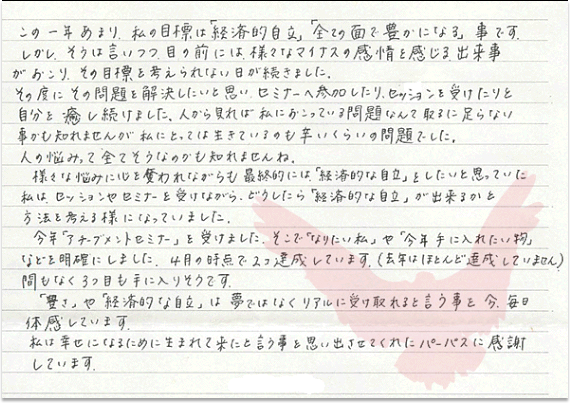 この一年あまり、私の目標は「経済的自立」「全ての面で豊かになる」事です。
しかし、そうは言いつつ、目の前には、様々なマイナスの感情を感じる出来事
がおこり、その目標を考えられない日が続きました。
その度に その問題を解決したいと思い、セミナーへ参加したり、セッションを受けたりと
自分を 癒し続けました。人から見れば 私におこっている問題なんて 取るに足らない
事かも知れませんが 私にとっては 生きているのも辛いくらいの問題でした。
人の悩みって 全てそうなのかも知れませんね。
様々な悩みに心を奪われながらも 最終的には「経済的な自立」をしたいと思っていた
私は、セッションやセミナーを受けながら、どうしたら「経済的な自立」が出来るかと
方法を考える様になっていました。
今年「アチーブメントセミナー」を受けました。そこで「なりたい私」や「今年手に入れたい物」
などを明確にしました。4月の時点で2つ達成しています。(去年はほとんど達成していません)
間もなく3つ目も手に入りそうです。
「豊さ」や「経済的な自立」は 夢ではなくリアルに受け取れると言う事を 今、毎日
体感しています。
私は幸せになるために生まれて来たと言う事を思い出させてくれたパーパスに感謝
しています。